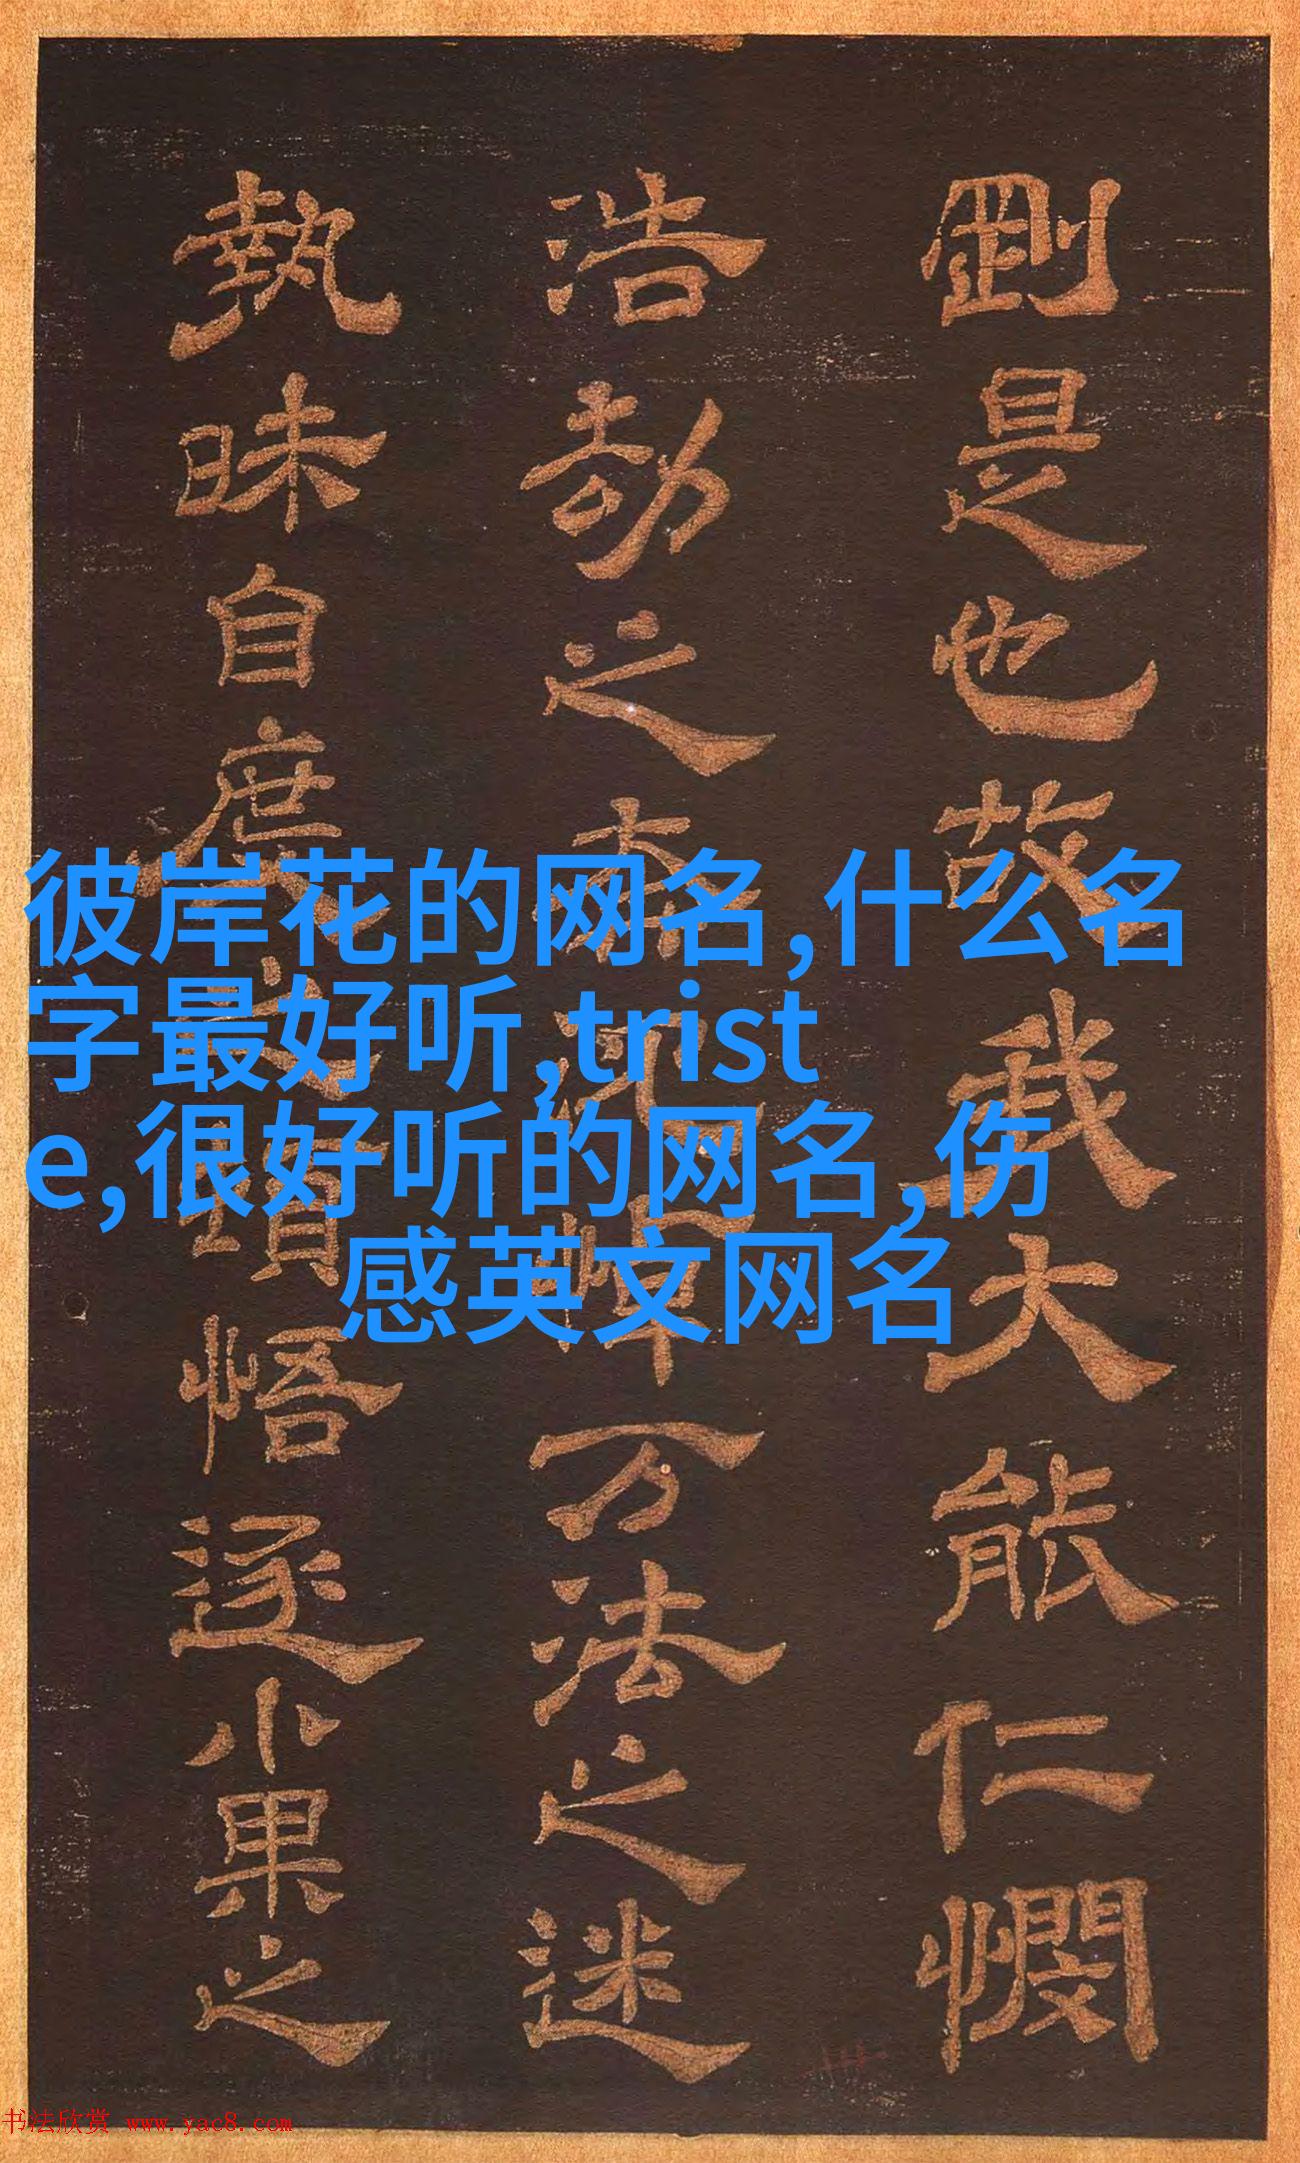 剛是也故我大能仁憫
浩劫之悼万法之迷
執昧自悟逐小果之
彼岸花的网名,什么名
字最好听,trist
e,很好听的网名,伤
感英文网名
书法欣赏 www.yac8.com